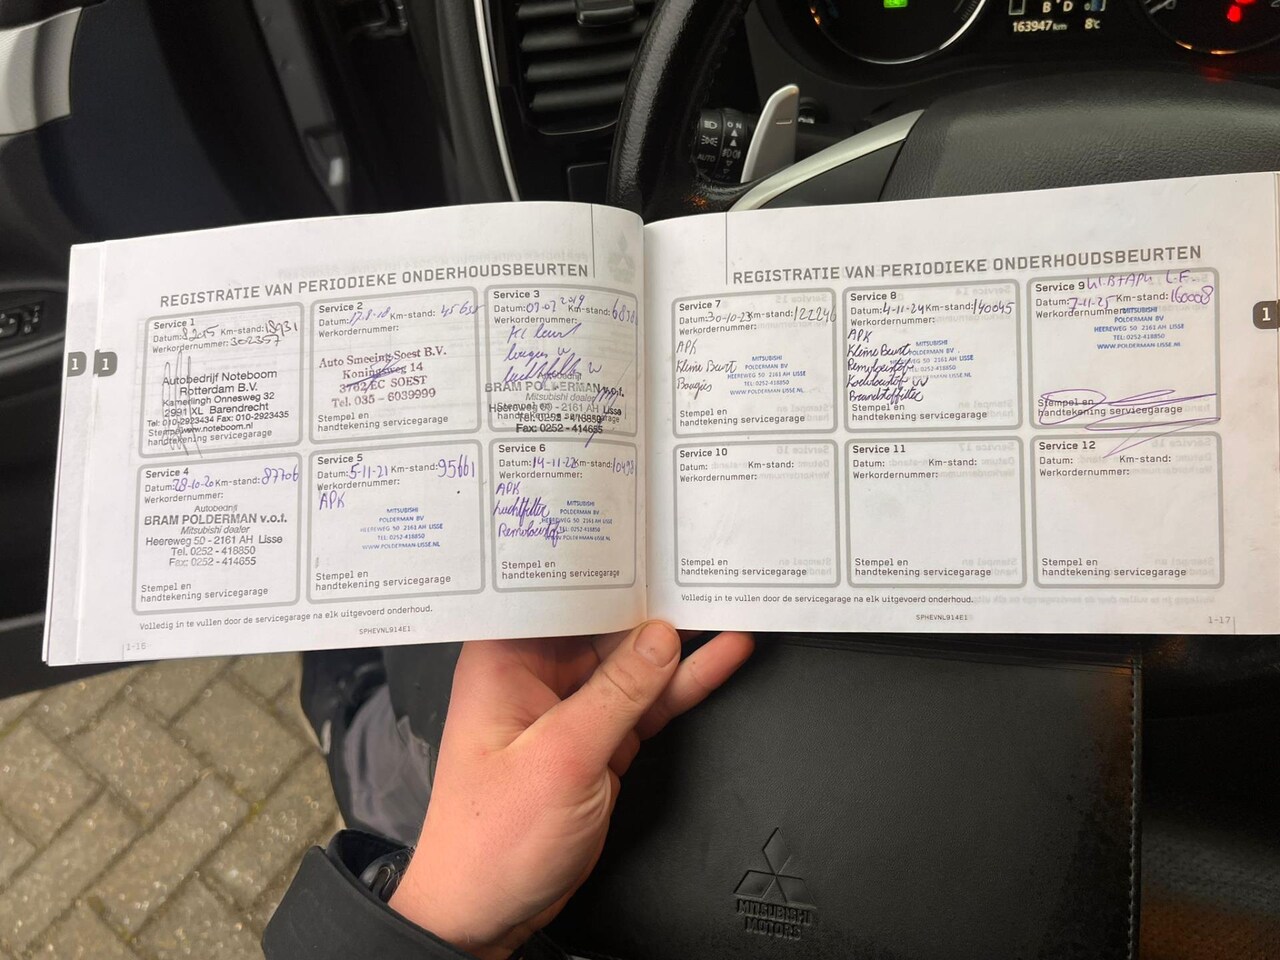 B D
163947 km 8°C
ON
AUTO
REGISTRATIE VAN PERIODIEKE ONDERHOUDSBEURTEN
Service 1
Datum: Km-stand: 18931
Werkordernummer: 302357
Autobedrijf Noteboom
Rotterdam B.V.
Kamerlingh Onnesweg 32
2991 XL Barendrecht
Tel: 010-2923434 Fax: 010-2923435
Stempel www.noteboom.nl
handtekening servicegarage
Service 2
Datum: Km-stand:
Werkordernummer:
Auto Smeeing Soest B.V.
Koningsweg 14
3762 EC SOEST
Tel. 035 - 6039999
Stempel en
handtekening servicegarage
Service 3
Datum: 2019 Km-stand:
Werkordernummer:
Kl beurt
BRAM POLDERMAN v.o.f.
Mitsubishi dealer
Heereweg 50 - 2161 AH Lisse
Tel. 0252 - 418850
Fax: 0252 - 414655
handtekening servicegarage
Service 4
Datum: 28-10-20 Km-stand: 87706
Werkordernummer:
Autobedrijf
BRAM POLDERMAN v.o.f.
Mitsubishi dealer
Heereweg 50 - 2161 AH Lisse
Tel. 0252 - 418850
Fax: 0252 - 414655
Stempel en
handtekening servicegarage
Service 5
Datum: 5-11-21 Km-stand: 95661
Werkordernummer:
APK
MITSUBISHI
POLDERMAN BV
HEEREWEG 50 2161 AH LISSE
TEL: 0252-418850
WWW.POLDERMAN-LISSE.NL
Stempel en
handtekening servicegarage
Service 6
Datum: 14-11-22 Km-stand:
Werkordernummer:
APK
Luchtfilter
Remvloeistof
MITSUBISHI
POLDERMAN BV
HEEREWEG 50 2161 AH LISSE
TEL: 0252-418850
WWW.POLDERMAN-LISSE.NL
Stempel en
handtekening servicegarage
Volledig in te vullen door de servicegarage na elk uitgevoerd onderhoud.
SPHEVNL914E1
1-16
1
1
REGISTRATIE VAN PERIODIEKE ONDERHOUDSBEURTEN
Service 7
Datum: 30-10-23 Km-stand: 122246
Werkordernummer:
APK
Kleine Beurt
Bougies
MITSUBISHI
POLDERMAN BV
HEEREWEG 50 2161 AH LISSE
TEL: 0252-418850
WWW.POLDERMAN-LISSE.NL
Stempel en
handtekening servicegarage
Service 8
Datum: 4-11-24 Km-stand: 140045
Werkordernummer:
APK
Kleine Beurt
Remvloeistof
Koelvloeistof
Brandstoffilter
MITSUBISHI
POLDERMAN BV
HEEREWEG 50 2161 AH LISSE
TEL: 0252-418850
WWW.POLDERMAN-LISSE.NL
Stempel en
handtekening servicegarage
Service 9
Datum: 7-11-25 Km-stand: 160008
Werkordernummer:
MITSUBISHI
POLDERMAN BV
HEEREWEG 50 2161 AH LISSE
TEL: 0252-418850
WWW.POLDERMAN-LISSE.NL
Stempel en
handtekening servicegarage
Service 10
Datum: Km-stand:
Werkordernummer:
Stempel en
handtekening servicegarage
Service 11
Datum: Km-stand:
Werkordernummer:
Stempel en
handtekening servicegarage
Service 12
Datum: Km-stand:
Werkordernummer:
Stempel en
handtekening servicegarage
Volledig in te vullen door de servicegarage na elk uitgevoerd onderhoud.
SPHEVNL914E1
1-17
1
MITSUBISHI
MOTORS